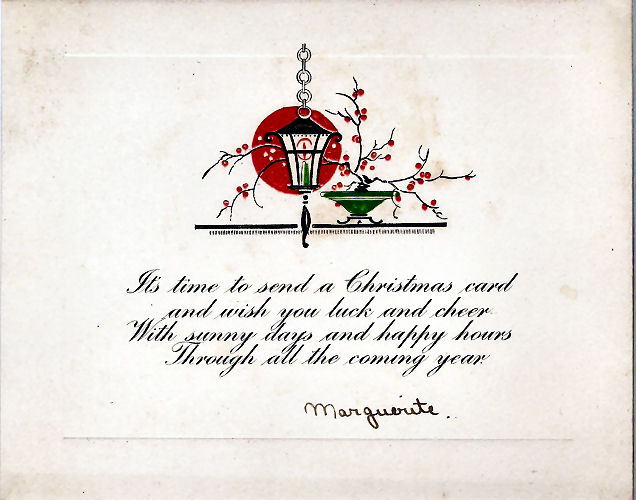 It's time to send a Christmas card
and wish you luck and cheer.
With sunny days and happy hours
Through all the coming year.
Marguerite.